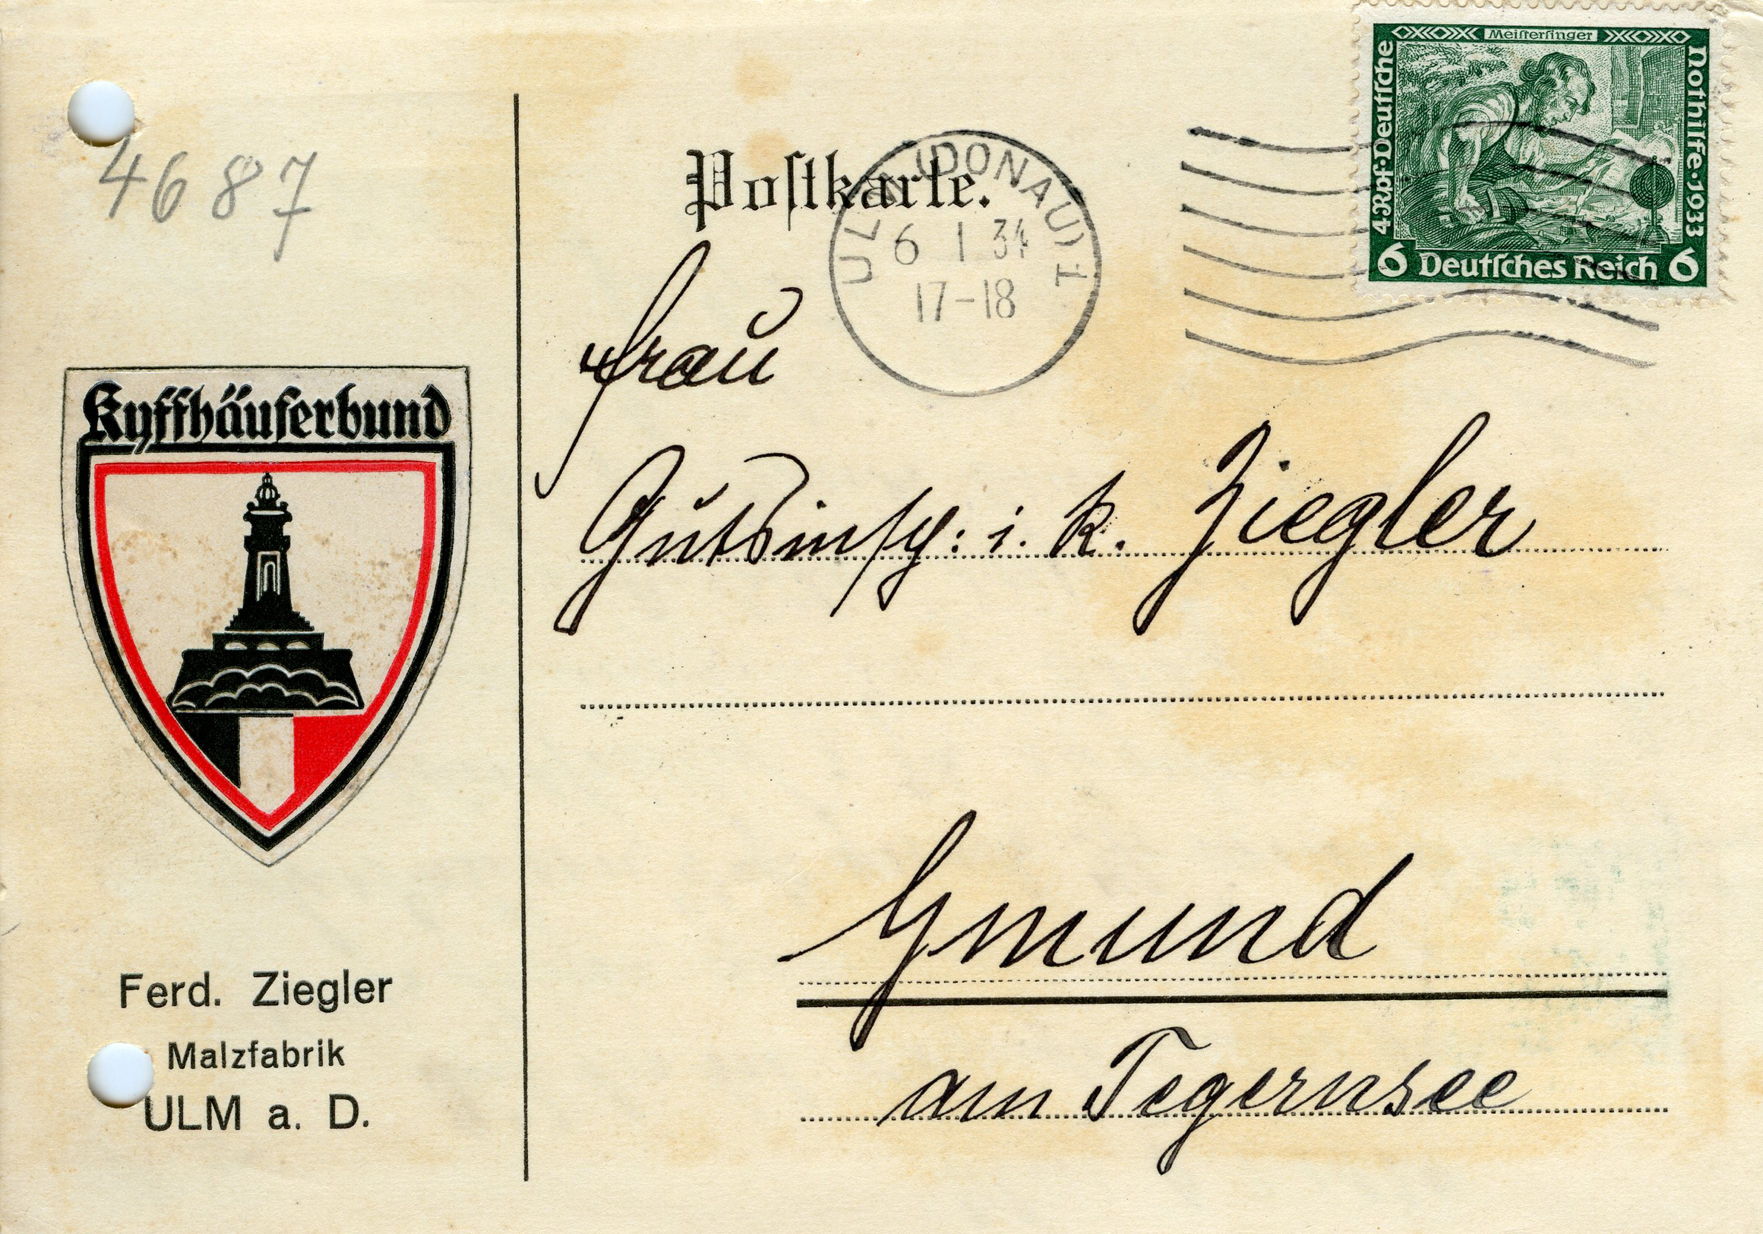 4687
Postkarte.
ULM (DONAU) 1
6 1 34
17-18
Meistersinger
4 Rpf·Deutsche
Nothilfe·1933
6 Deutsches Reich 6
Kyffhäuserbund
Frau
Gutsinsp: i. R. Ziegler
Gmund
am Tegernsee
Ferd. Ziegler
Malzfabrik
ULM a. D.